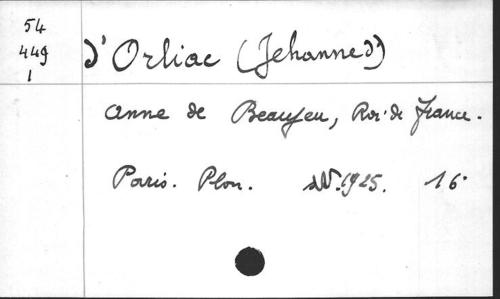 54
449
1
d'Orliac (Jehanne d')
Anne de Beaujeu, Roi de France.
Paris. Plon. 1925. 16°